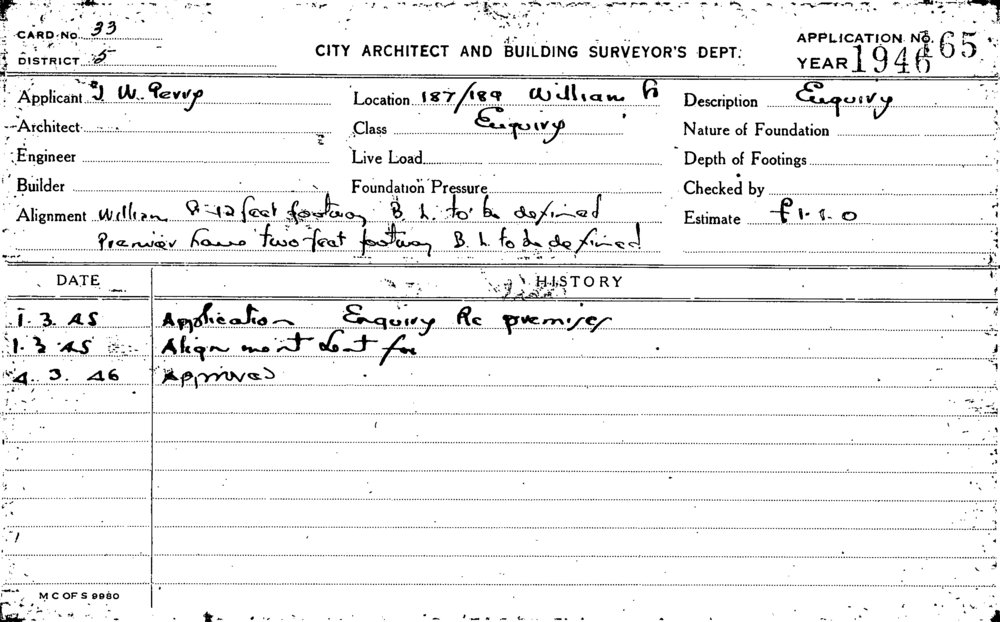 CARD No. 33
DISTRICT 5
CITY ARCHITECT AND BUILDING SURVEYOR'S DEPT.
APPLICATION No. 165
YEAR 1946
Applicant J W. Perry
Location 187/189 William
Description Enquiry
Architect
Class Enquiry
Nature of Foundation
Engineer
Live Load
Depth of Footings
Builder
Foundation Pressure
Checked by
Alignment William 12 feet footway B L. to be defined
Premier Lane two feet footway B. L. to be defined
Estimate £1.1.0
DATE
HISTORY
1. 3. 45 Application Enquiry Re premises
1. 3 45 Alignment sent for
4. 3. 46 Approved
M C OF S 9980